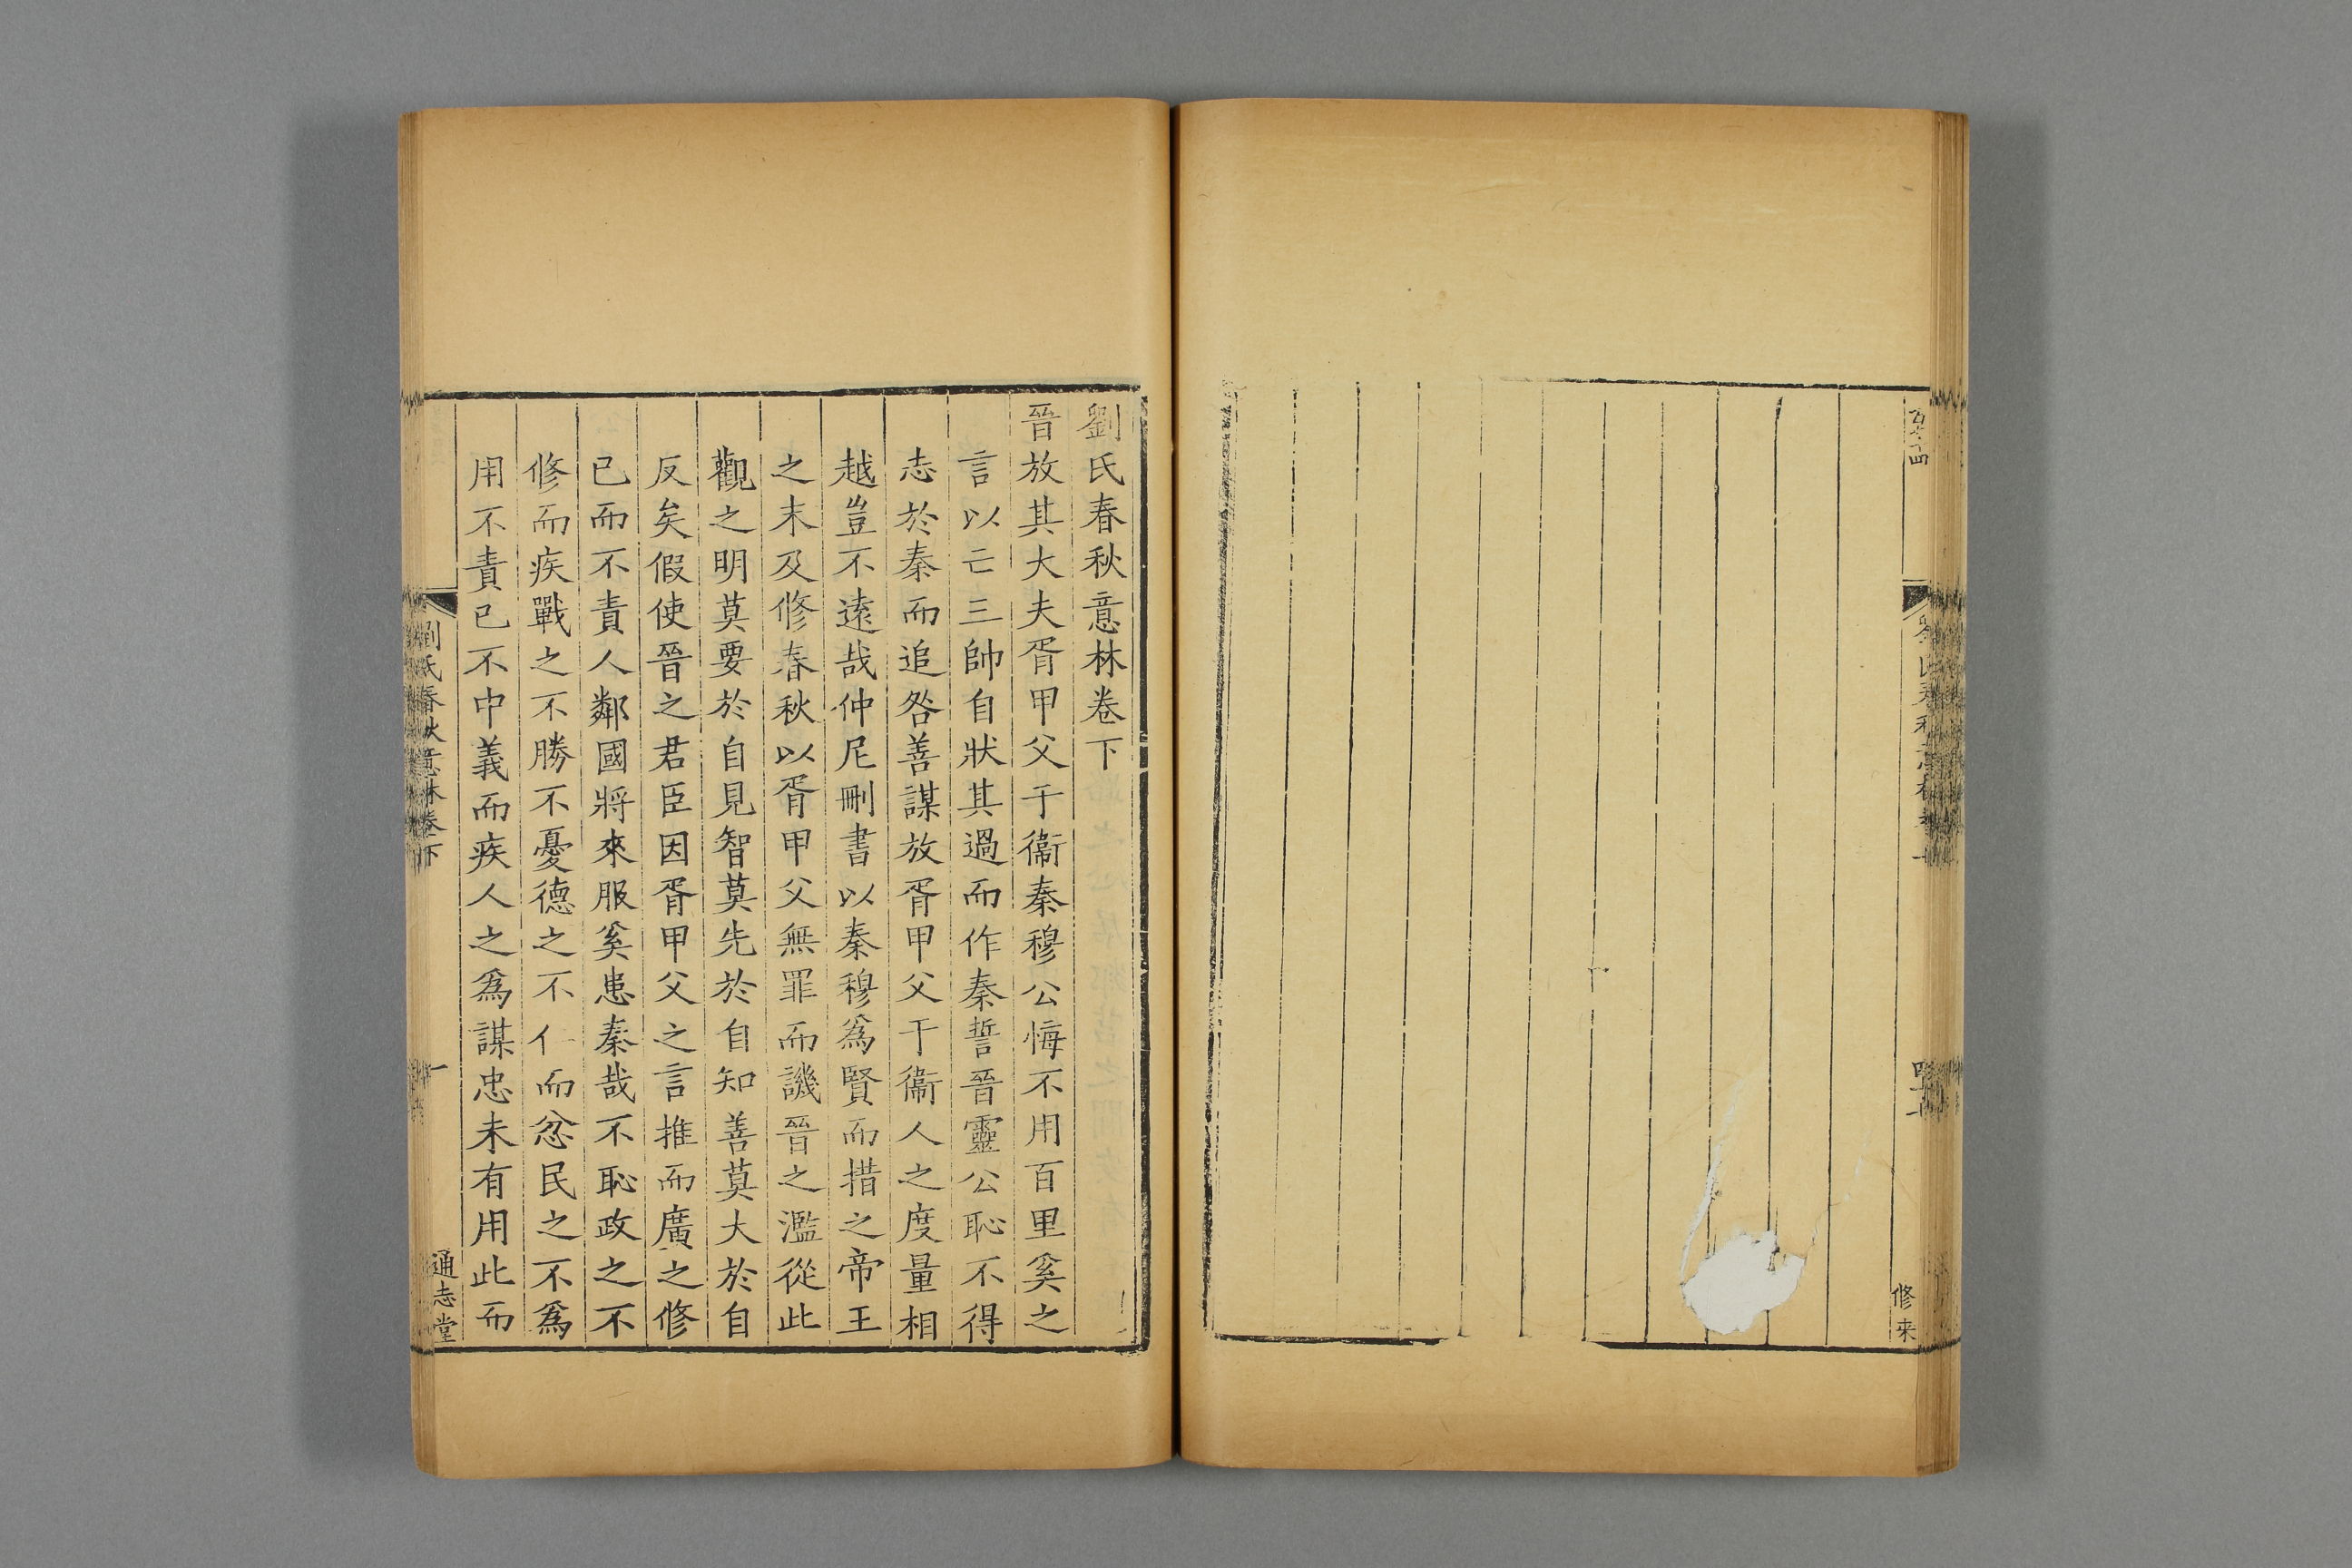 劉氏春秋意林卷下
晉放其大夫胥甲父于衞秦穆公悔不用百里奚之
言以亡三帥自狀其過而作秦誓晉靈公恥不得
志於秦而追咎善謀放胥甲父于衞人之度量相
越豈不遠哉仲尼刪書以秦穆爲賢而措之帝王
之末及修春秋以胥甲父無罪而譏晉之濫從此
觀之明莫要於自見智莫先於自知善莫大於自
反矣假使晉之君臣因胥甲父之言推而廣之修
已而不責人鄰國將來服奚患秦哉不恥政之不
修而疾戰之不勝不憂德之不仁而忿民之不爲
用不責已不中義而疾人之爲謀忠未有用此而
劉氏春秋意林卷下
一
通志堂
修来